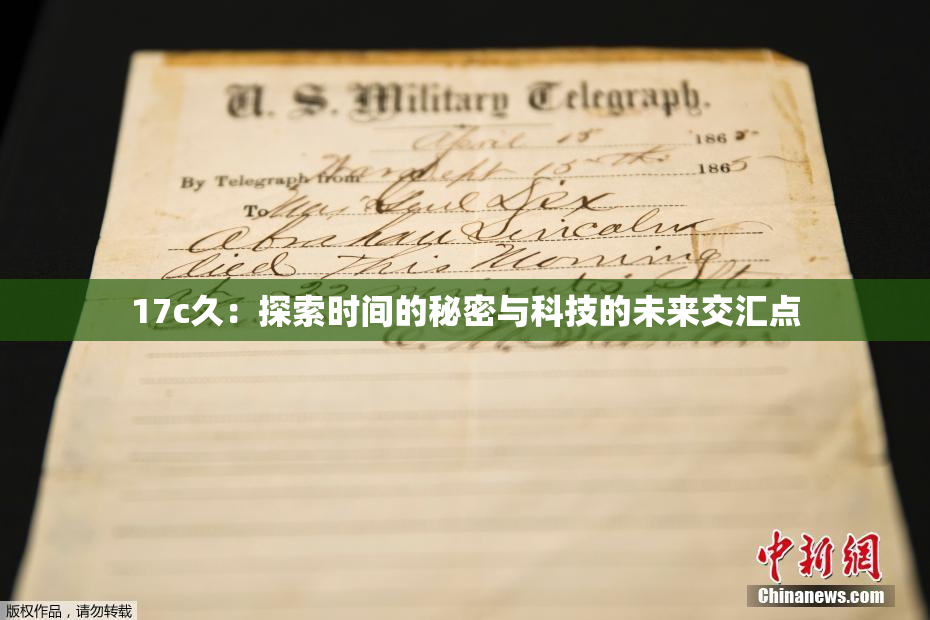 U. S. Military Telegraph.
April 15 1865
By Telegraph from War Dept 15th 1865
To Maj Genl Dix
Abraham Lincoln
died This Morning
at 22 minutes after
17c久：探索时间的秘密与科技的未来交汇点
E. M. Stanton
中新网
Chinanews.com
版权作品，请勿转载